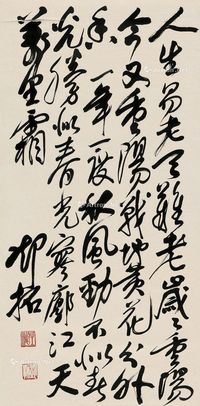 人生易老天難老歲〻重陽
今又重陽戰地黃花分外
香一年一度秋風勁不似春
光勝似春光寥廓江天
萬里霜
鄧拓